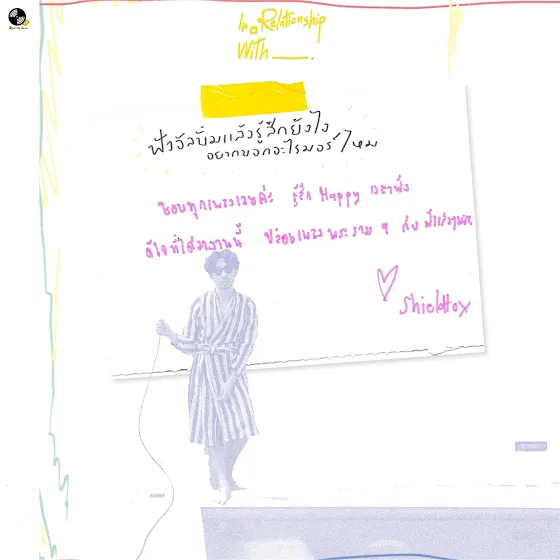 In a Relationship
With ____.
ฟังอัลบั้มแล้วรู้สึกยังไง
อยากบอกอะไรมอร์ไหม
ชอบทุกเพลงเลยค่ะ รู้สึก Happy เวลาฟัง
ดีใจที่ได้มางานนี้ ปล่อยเพลง พระราม 9 กับ
ShieldHox